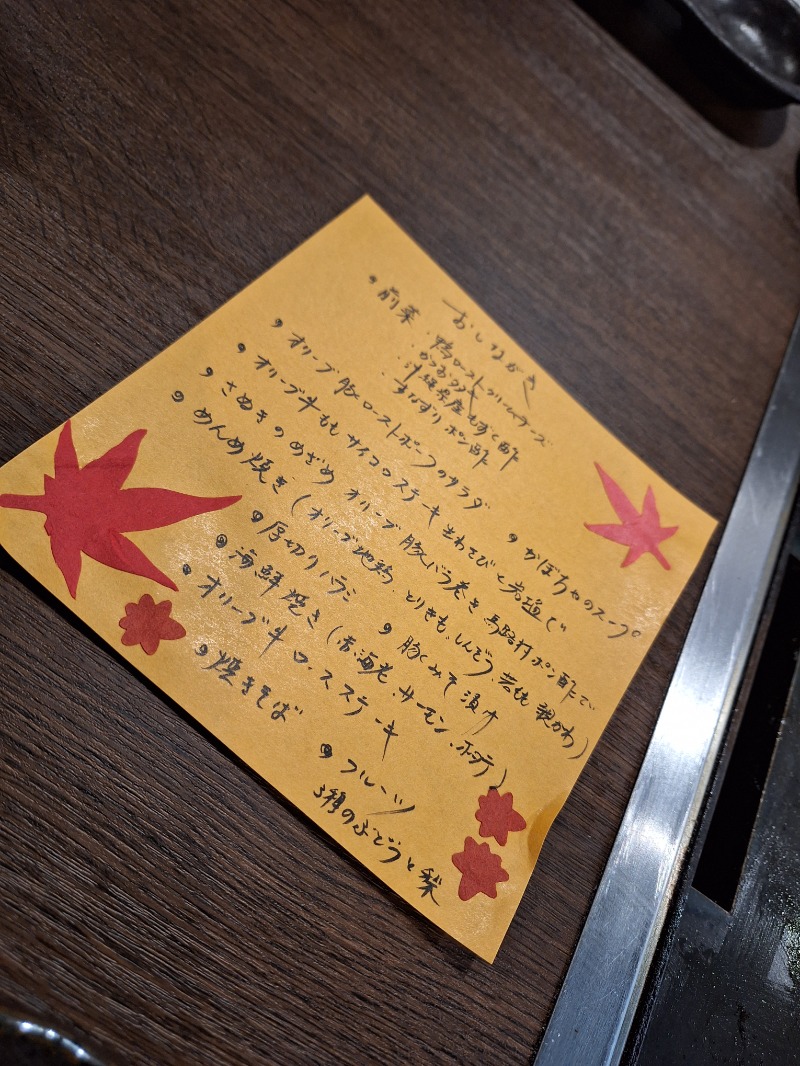 おしながき
・前菜 ・鴨ロースト クリームチーズ
・かつおタタキ
・沖縄県産もずく酢
・すなずり ポン酢
・オリーブ豚ローストポークのサラダ
・かぼちゃのスープ
・オリーブ牛ももサイコロステーキ 生わさびと岩塩で
・さぬきのめざめ オリーブ豚バラ巻き 馬路村ポン酢で
・めんめ焼き(オリーブ地鶏、とりきも、しんぞう、若鶏、親かわ)
・厚切りハラミ
・豚みそ漬け
・海鮮焼き(赤海老、サーモン、ホタテ)
・オリーブ牛ロースステーキ
・焼きそば
・フルーツ
3種のぶどうと梨